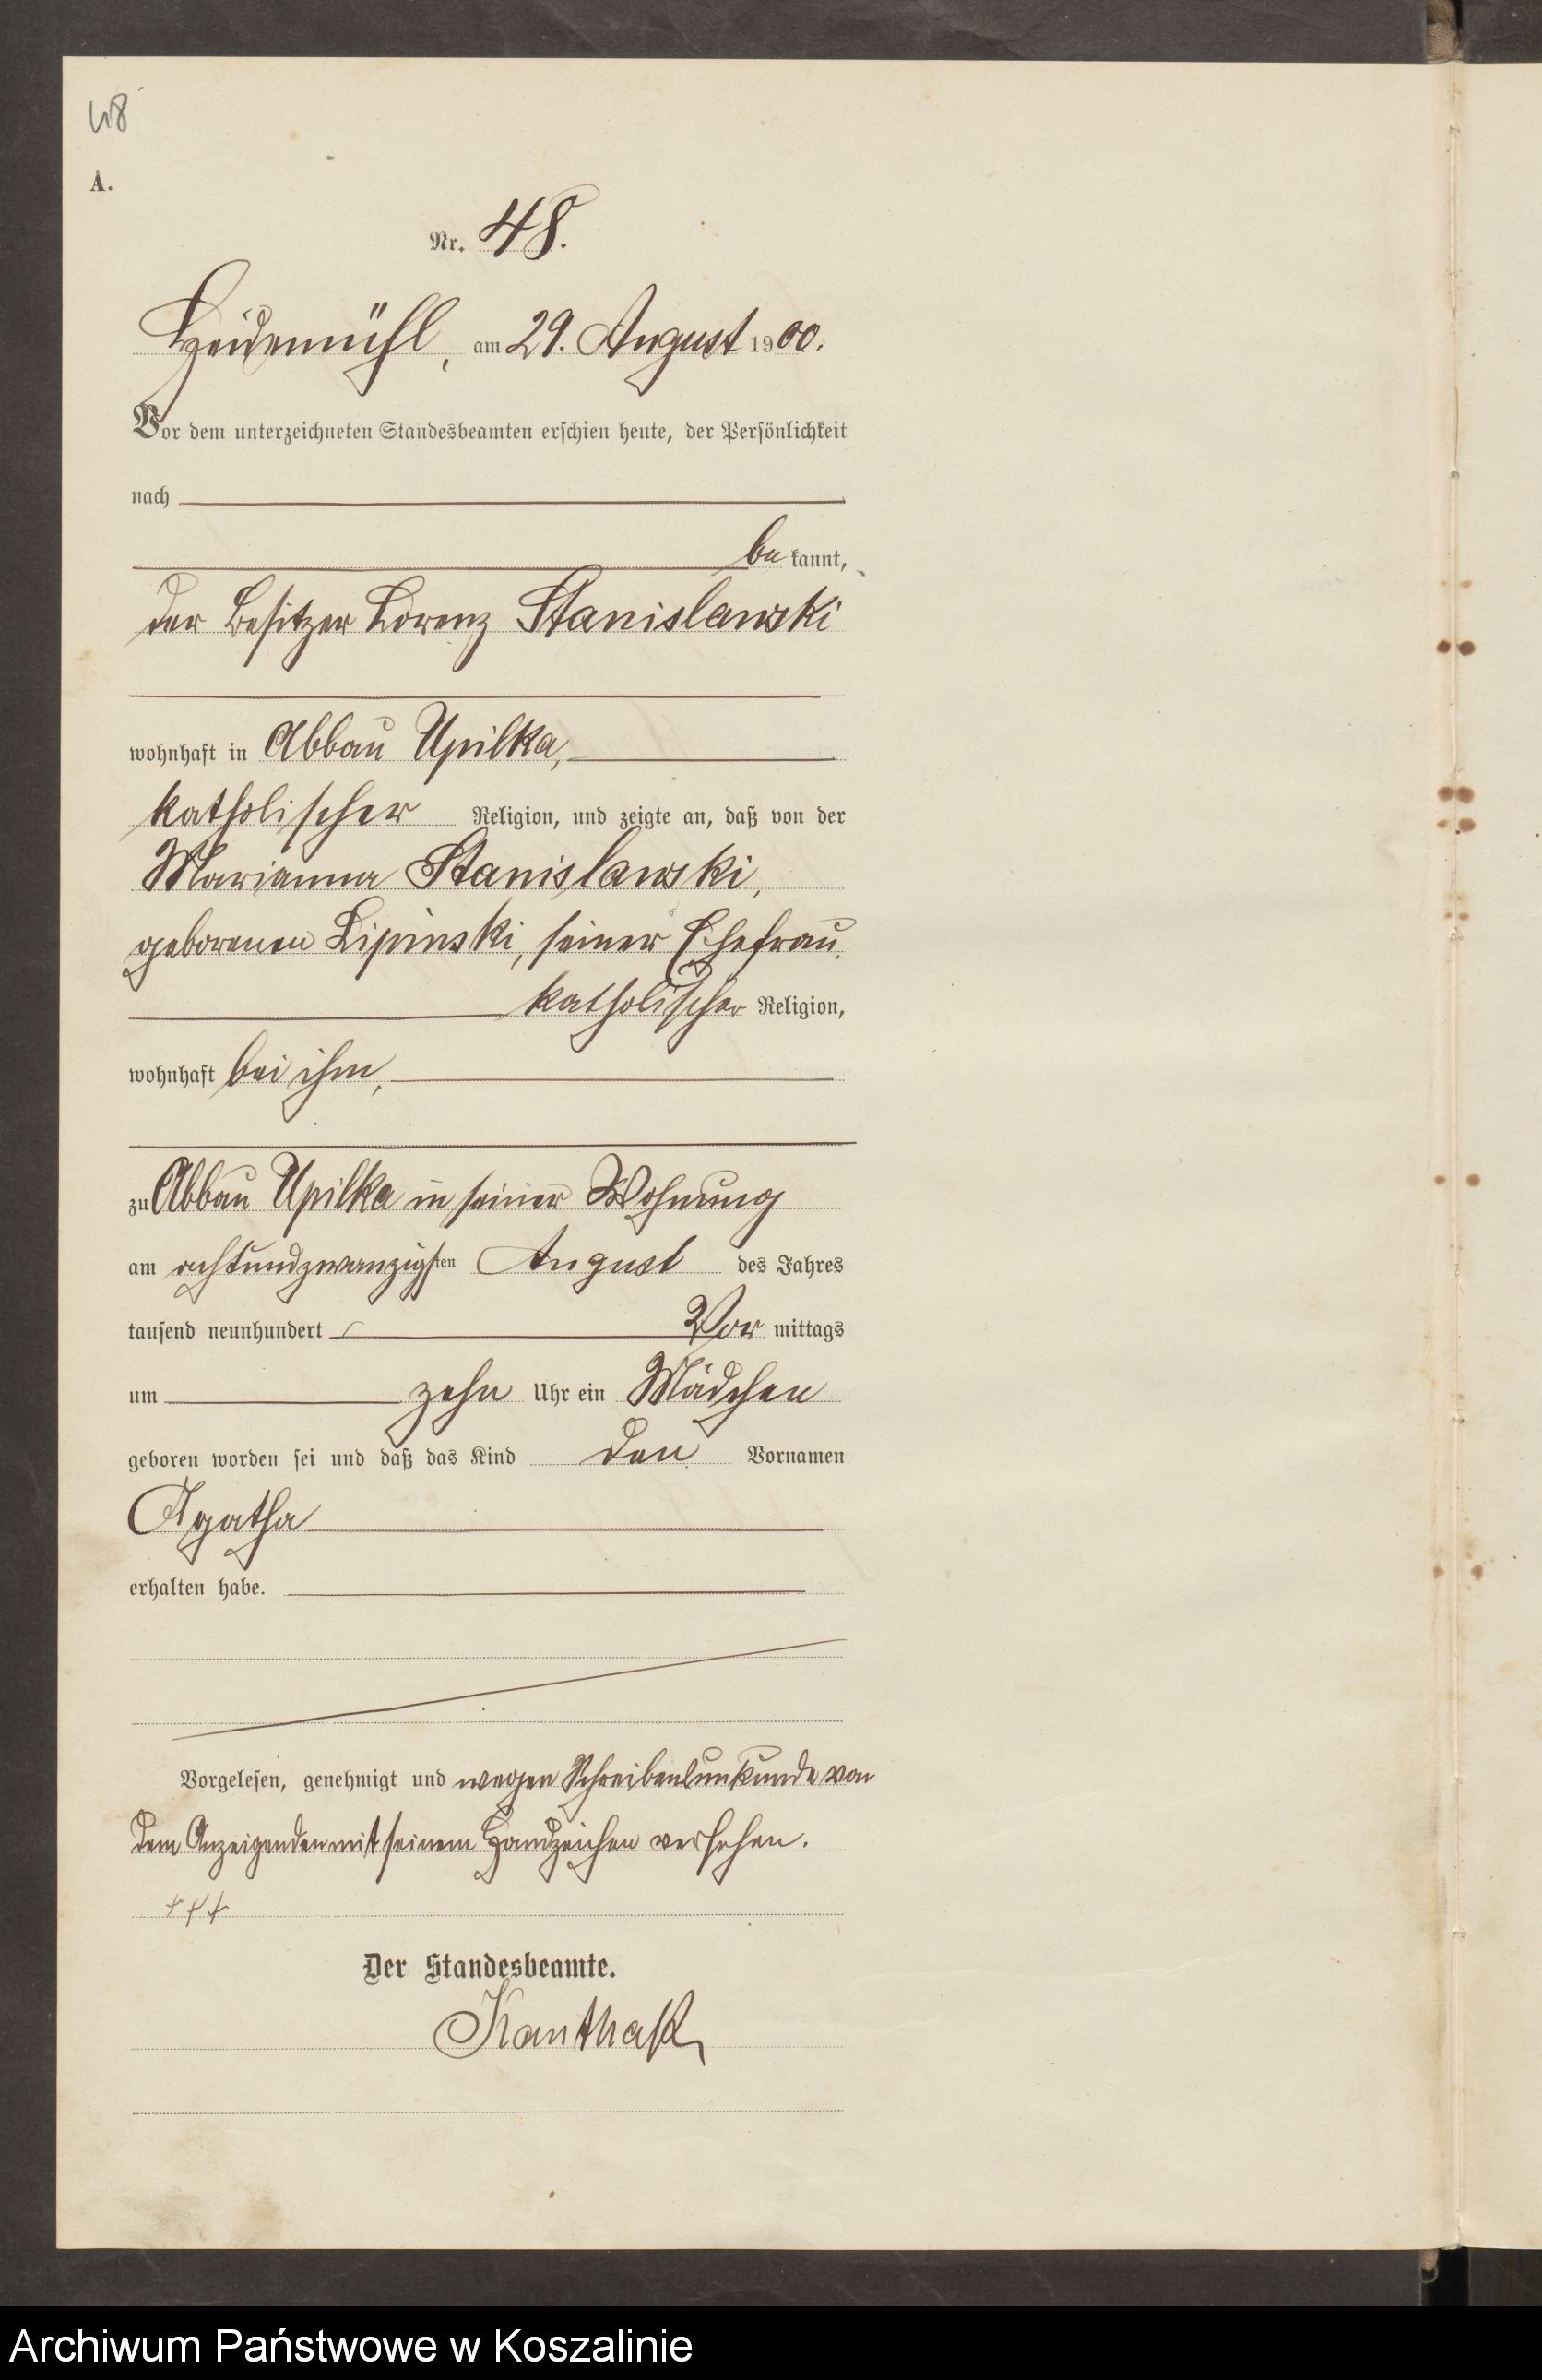 48
A.
Nr. 48.
Heidemühl, am 29. August 1900.
Vor dem unterzeichneten Standesbeamten erschien heute, der Persönlichkeit
nach
be kannt,
der Besitzer Lorenz Stanislawski
wohnhaft in Abbau Upilka,
katholischer Religion, und zeigte an, daß von der
Marianna Stanislawski,
geborenen Lipinski, seiner Ehefrau,
katholischer Religion,
wohnhaft bei ihm,
zu Abbau Upilka in seiner Wohnung
am achtundzwanzigsten August des Jahres
tausend neunhundert Vor mittags
um zehn Uhr ein Mädchen
geboren worden sei und daß das Kind den Vornamen
Agatha
erhalten habe.
Vorgelesen, genehmigt und wegen Schreibensunkunde von
dem Anzeigenden mit seinem Handzeichen versehen.
+++
Der Standesbeamte.
Kanthak
Archiwum Państwowe w Koszalinie